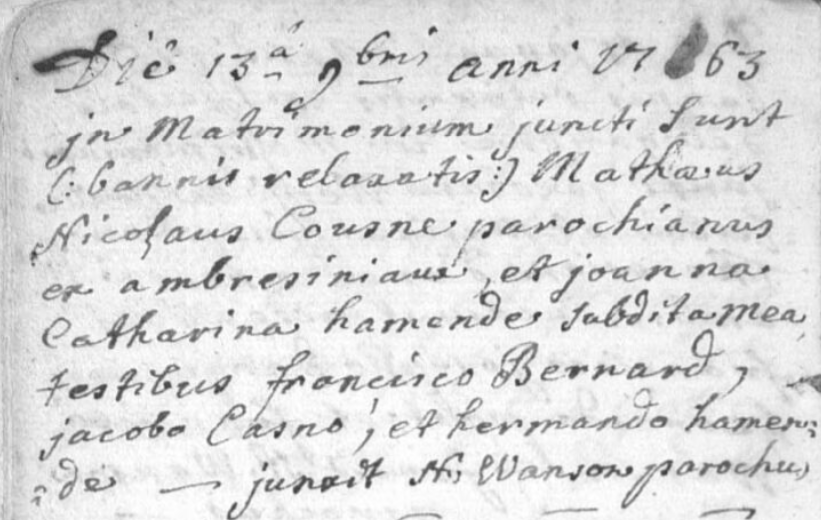 Die 13â 9bris anni 17 63
jn Matrimonium juncti sunt
(: bannis relaxatis :) Mathæus
Nicolaus Cousne parochianus
ex ambresiniaux, et joanna
Catharina hamende subdita mea,
testibus francisco Bernard,
jacobo Casno, et hermando hamen:
:de — junxit N: Wanson parochus